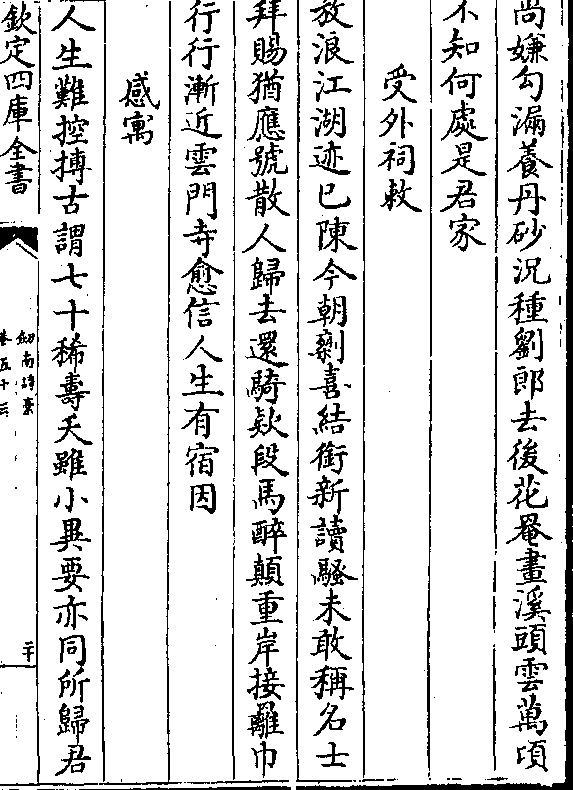 尚嫌勾漏養丹砂况種劉郎去後花罨畫溪頭雲萬頃
不知何處是君家
受外祠敕
放浪江湖迹已陳今朝剩喜結銜新讀騷未敢稱名士
拜賜猶應號散人歸去還騎欵段馬醉顛重岸接䍦巾
行行漸近雲門寺愈信人生有宿因
感寓
人生難控摶古謂七十稀壽夭雖小異要亦同所歸君
欽定四庫全書
劍南詩藁
卷五十三
二十